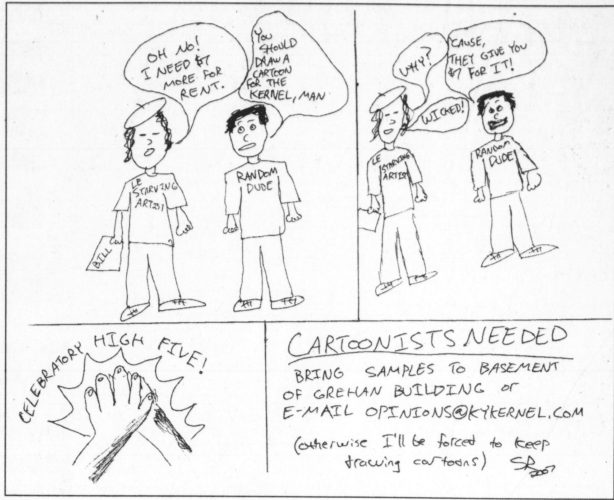 OH NO!
I NEED $7
MORE FOR
RENT.
YOU
SHOULD
DRAW A
CARTOON
FOR THE
KERNEL, MAN
LE
STARVING
ARTIST
RANDOM
DUDE
BILL
WHY?
'CAUSE,
THEY GIVE YOU
$7 FOR IT!
WICKED!
LE
STARVING
ARTIST
RANDOM
DUDE
CELEBRATORY HIGH FIVE!
CARTOONISTS NEEDED
BRING SAMPLES TO BASEMENT
OF GREHAN BUILDING or
E-MAIL OPINIONS@KYKERNEL.COM
(otherwise I'll be forced to keep
drawing cartoons)
2007